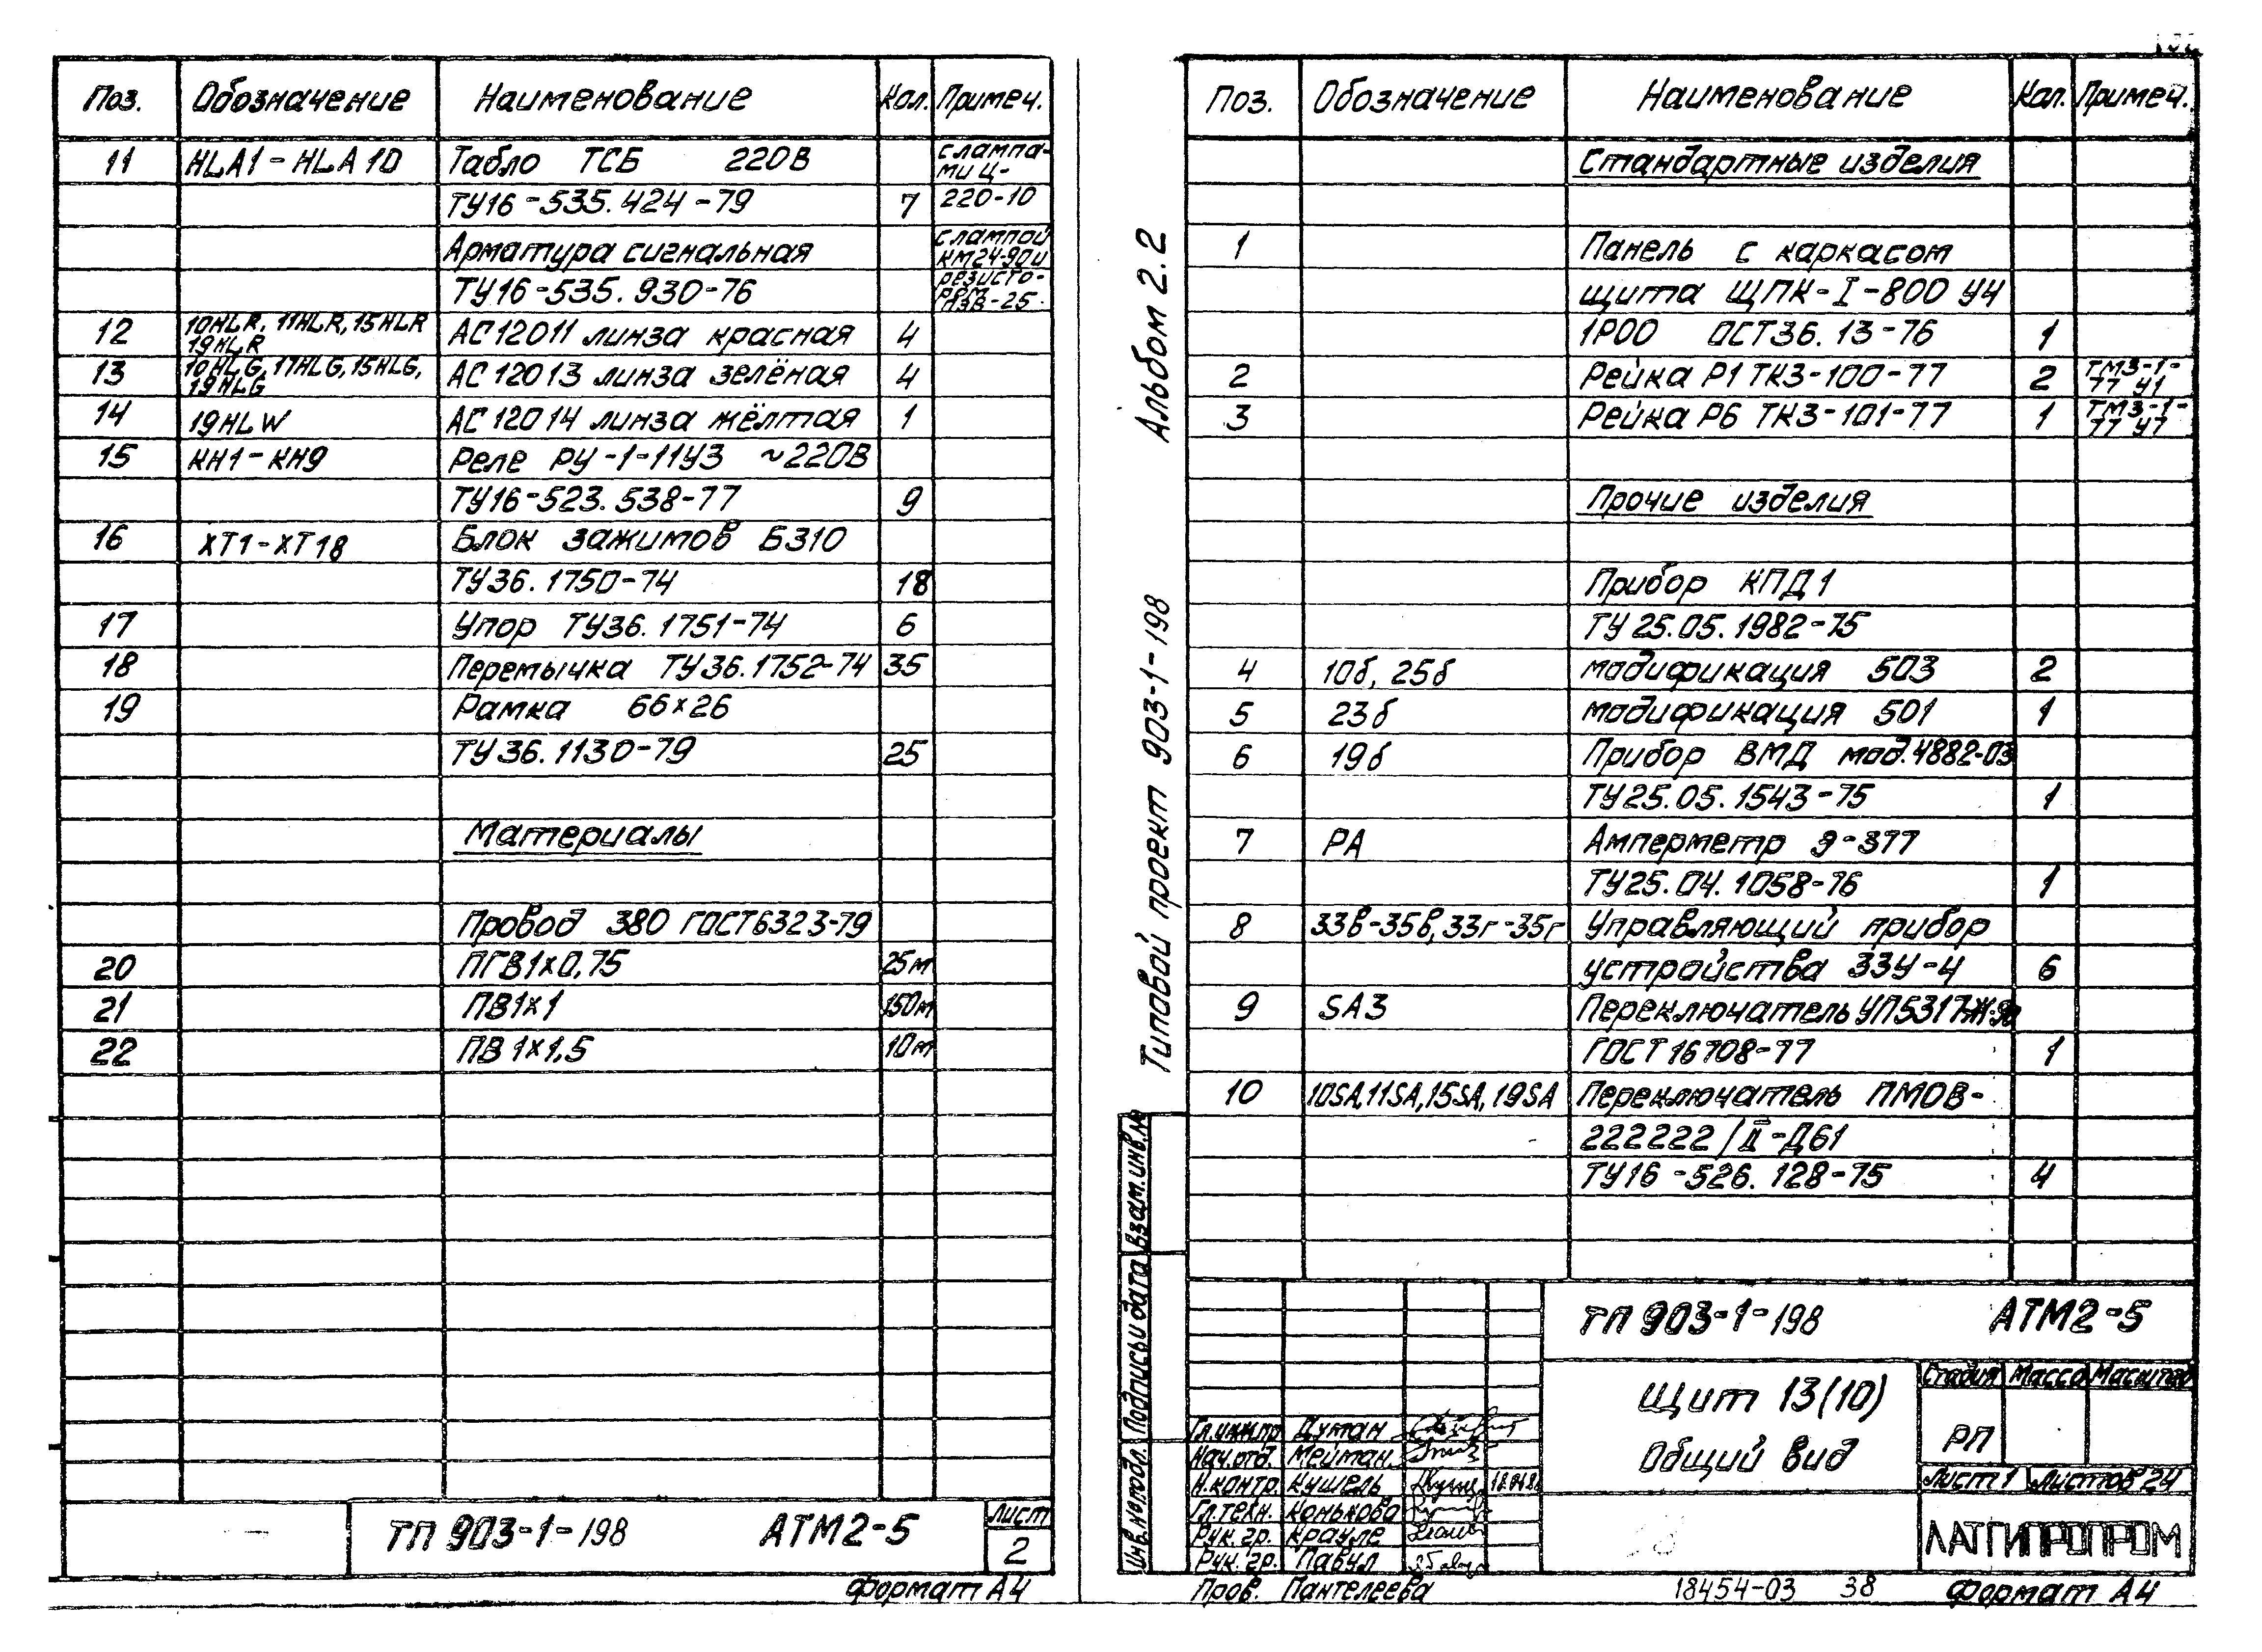 Поз. Обозначение Наименование Кол. Примеч.
11 HLA1-HLA10 Табло ТСБ 220В с лампа-
ми Ц-
ТУ16-535.424-79 7 220-10
Арматура сигнальная с лампой
КМ24-90 и
ТУ16-535.930-76 резисто-
ром
ПЭВ-25
12 10HLR, 11HLR, 15HLR
19HLR АС12011 линза красная 4
13 10HLG, 17HLG, 15HLG,
19HLG АС12013 линза зелёная 4
14 19HLW АС12014 линза жёлтая 1
15 КН1-КН9 Реле РУ-1-11У3 ~220В
ТУ16-523.538-77 9
16 ХТ1-ХТ18 Блок зажимов БЗ10
ТУ36.1750-74 18
17 Упор ТУ36.1751-74 6
18 Перемычка ТУ36.1752-74 35
19 Рамка 66×26
ТУ36.1130-79 25
Материалы
Провод 380 ГОСТ6323-79
20 ПГВ1×0,75 25м
21 ПВ1×1 150м
22 ПВ1×1,5 10м
ТП 903-1-198 АТМ2-5 Лист
2
Формат А4
Альбом 2.2
Типовой проект 903-1-198
Взам.инв.№
Подпись и дата
Инв.№ подл.
Поз. Обозначение Наименование Кол. Примеч.
Стандартные изделия
1 Панель с каркасом
щита ЩПК-I-800 У4
1Р00 ОСТ36.13-76 1
2 Рейка Р1 ТК3-100-77 2 ТМ3-1-
77 У1
3 Рейка Р6 ТК3-101-77 1 ТМ3-1-
77 У7
Прочие изделия
Прибор КПД1
ТУ25.05.1982-75
4 10б, 25б модификация 503 2
5 23б модификация 501 1
6 19б Прибор ВМД мод.4882-03
ТУ25.05.1543-75 1
7 РА Амперметр Э-377
ТУ25.04.1058-76 1
8 33в-35в, 33г-35г Управляющий прибор
устройства ЗЗУ-4 6
9 SA3 Переключатель УП5317-Ж
ГОСТ16708-77 1
10 10SA, 11SA, 15SA, 19SA Переключатель ПМОВ-
222222/II-Д61
ТУ16-526.128-75 4
ТП 903-1-198 АТМ2-5
Щит 13(10)
Общий вид
Стадия Масса Масштаб
РП
Лист 1 Листов 24
ЛАТГИПРОПРОМ
Гл.инж.пр Думан
Нач.отд. Мейман
Н.контр. Кушель
Гл.техн. Конькова
Рук. гр. Крауле
Рук. гр. Павул
Пров. Пантелеева
18454-03 38
Формат А4